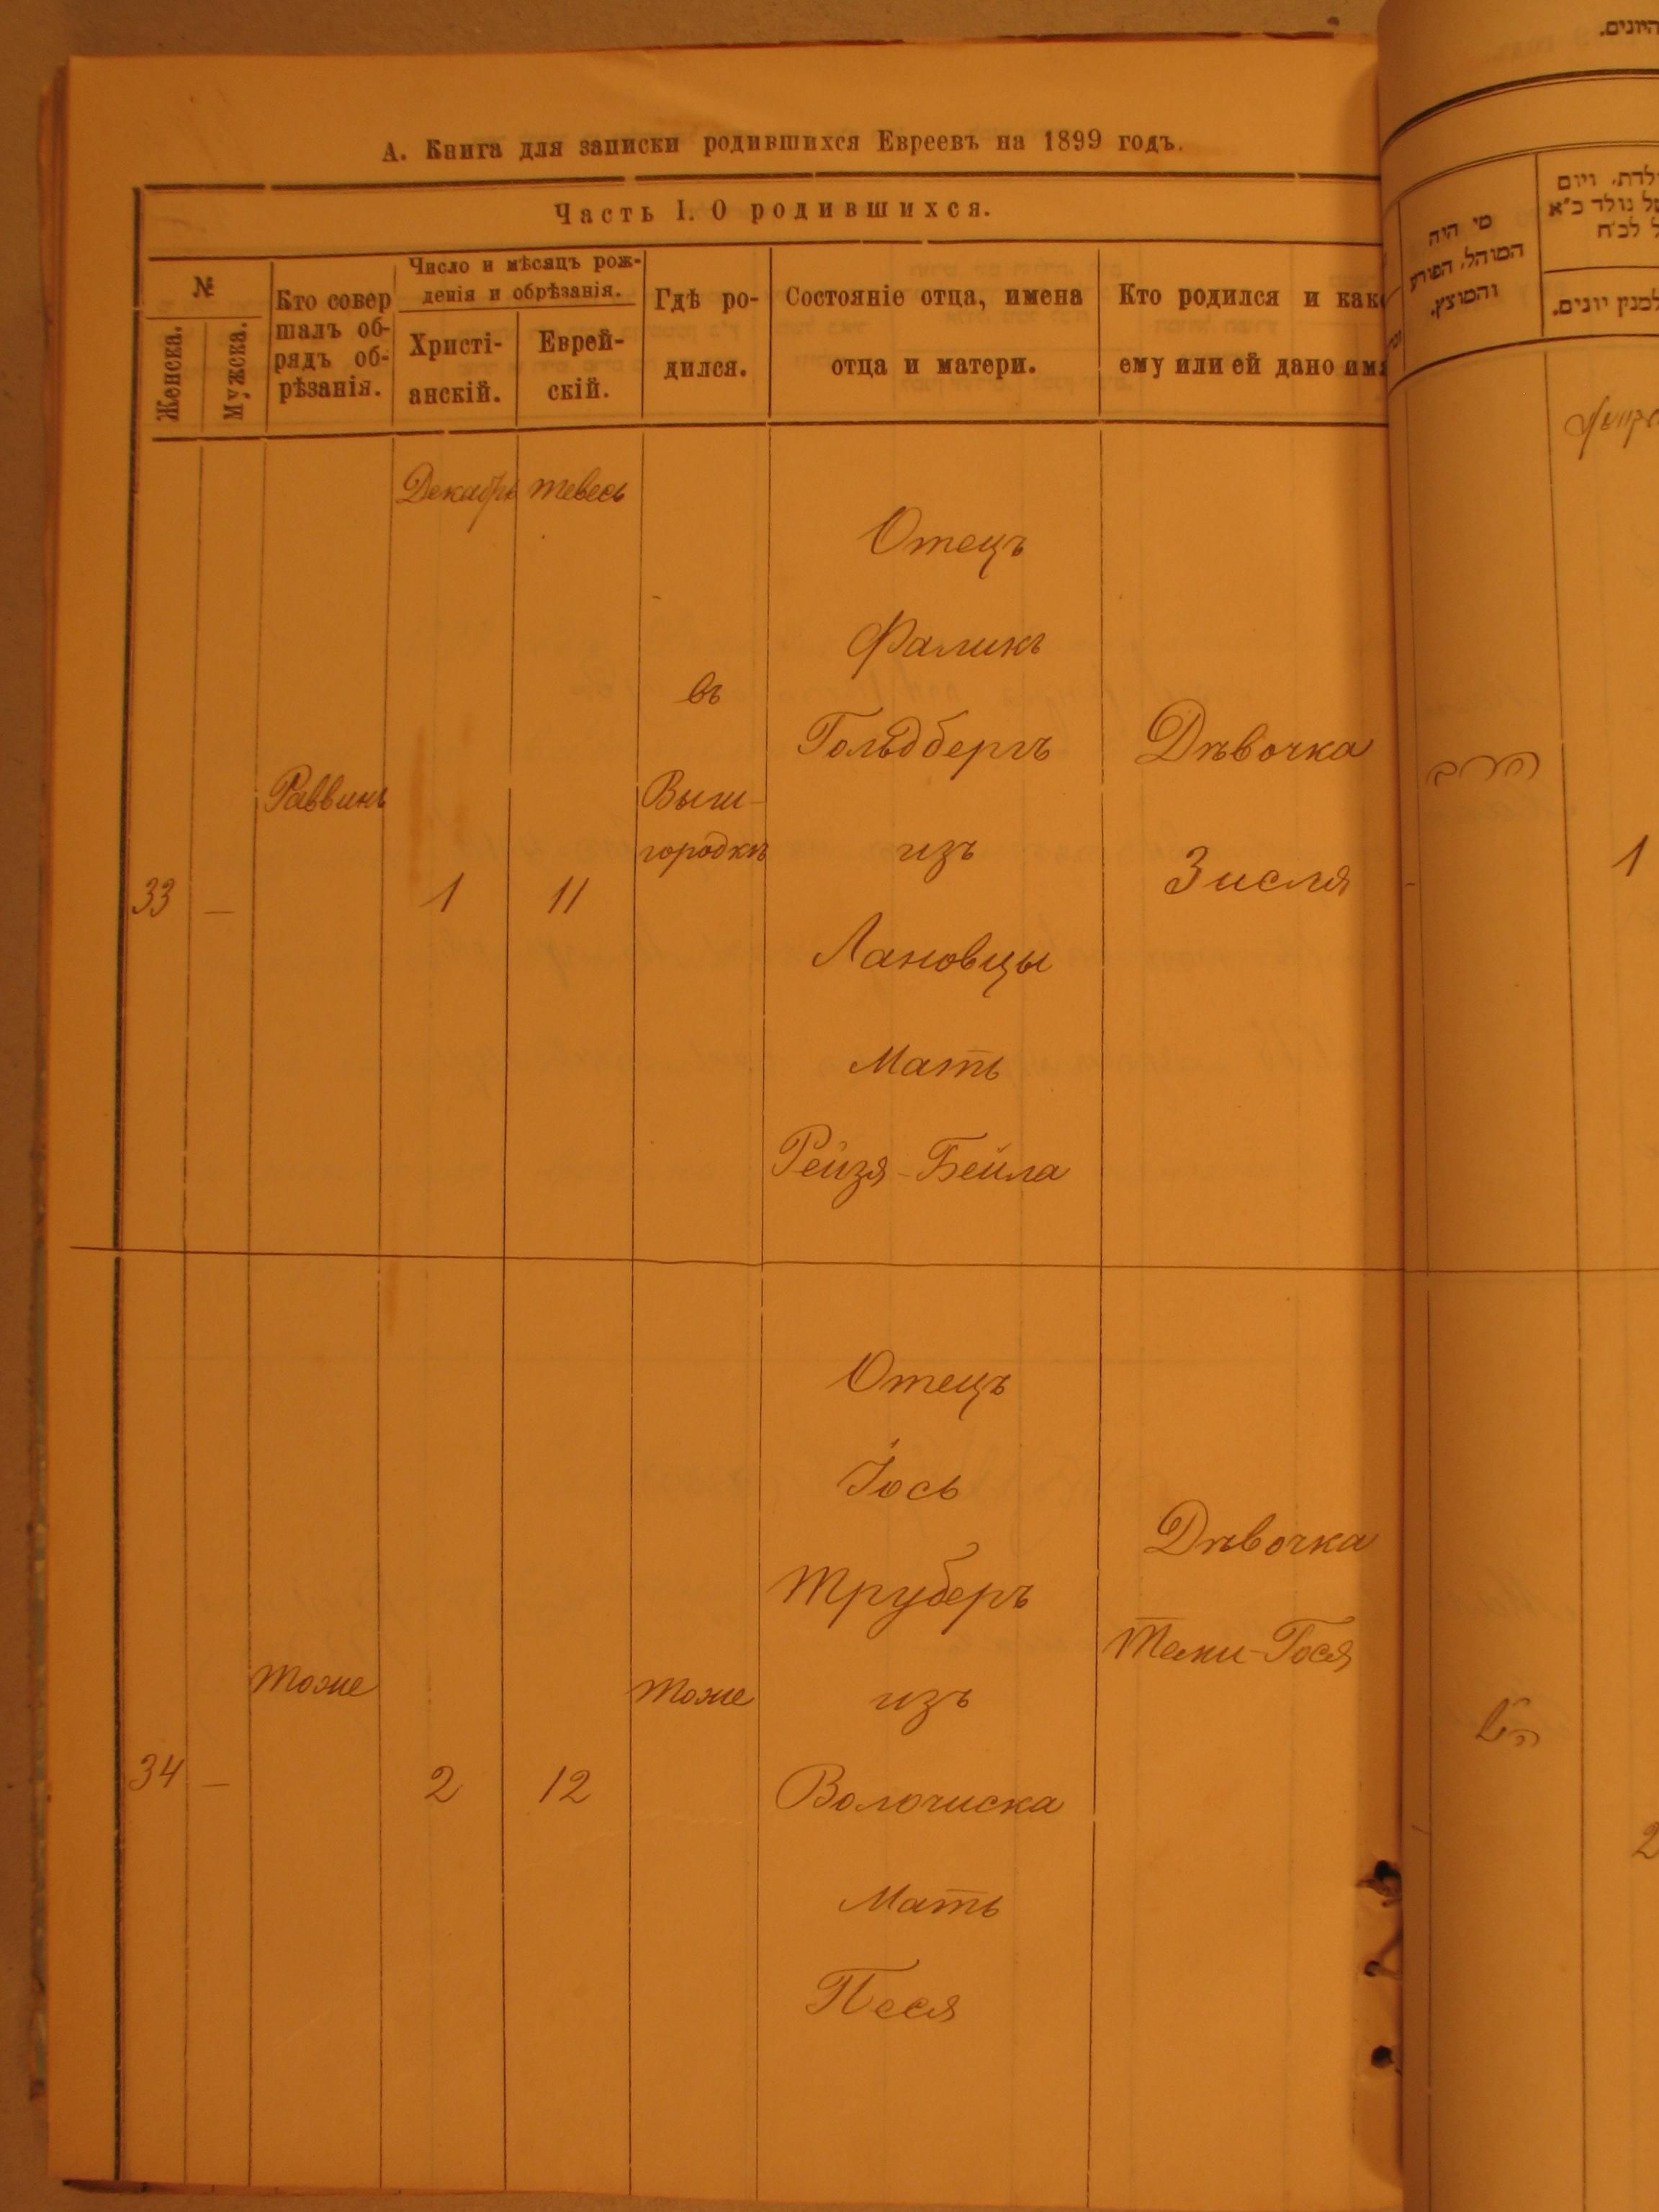 А. Книга для записки родившихся Евреевъ на 1899 годъ.
Часть I. О родившихся.
№
Женска.
Мужска.
Кто совер
шалъ об-
рядъ об-
рѣзанія.
Число и мѣсяцъ рож-
денія и обрѣзанія.
Христі-
анскій.
Еврей-
скій.
Гдѣ ро-
дился.
Состояніе отца, имена
отца и матери.
Кто родился и как
ему или ей дано
Декабрь
тевесь
33
—
Раввинъ
1
11
въ
Выш-
городкѣ
Отецъ
Фаликъ
Гольдбергъ
изъ
Лановцы
Мать
Рейзя-Бейла
Дѣвочка
Зисля
34
—
тоже
2
12
тоже
Отецъ
Іось
Труберъ
изъ
Волочиска
Мать
Песя
Дѣвочка
היונים.
מי היה
המוהל, הפורע
והמוצץ.
ויום
נולד כ"א
לכ"ח
למנין יונים.
הרב
1
2